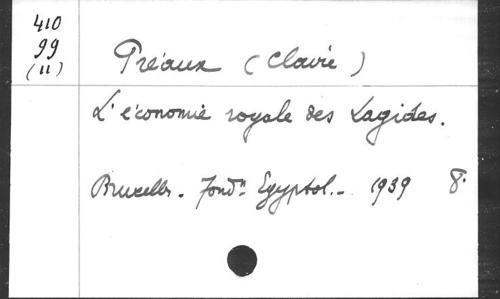 410
99
(11)
Préaux (Claire)
L'économie royale des Lagides.
Bruxelles. Fondn Egyptol.- 1939 8.